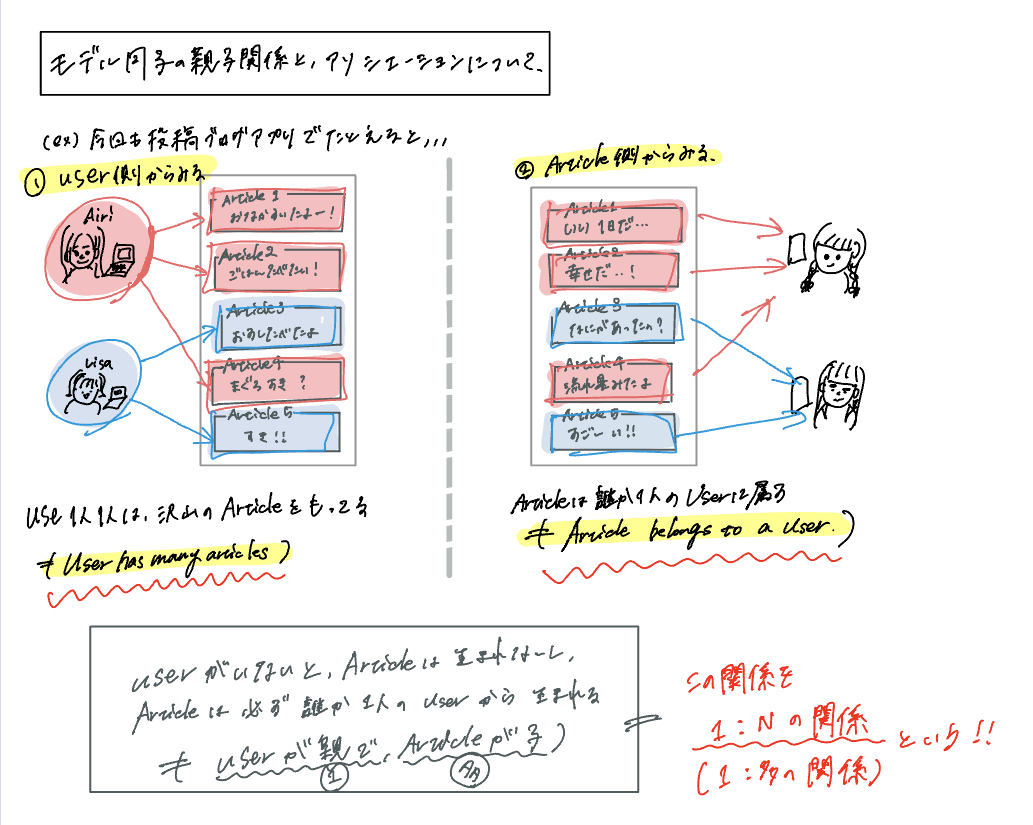 モデル同子の親子関係と,アソシエーションについて.
(ex) 今回も投稿ブログアプリでたとえると,,,
① user側からみる
Airi
Article 1
おなかすいたよー!
Article2
ごはんたべたい!
Article3
おすしたべたよ
Article4
まぐろすき?
Article 5
すき!!
Lisa
use 1人1人は、沢山のArticleをもってる
(= User has many articles )
② Article側からみる.
Article1
いい1日だ…
Article2
幸せだ…!
Article 3
なにがあったの?
Article4
流れ星みたよ
Article 5
すごーい!!
Articleは誰か1人のUserに属す
(= Article belongs to a user. )
userがいないと, Articleは生まれないし,
Articleは必ず誰か1人のuserから生まれる
(= userが親で, Articleが子)
1
多
=
この関係を
1:Nの関係
という!!
(1:多の関係)